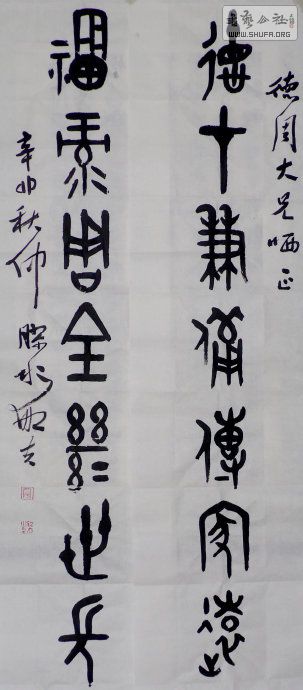 書藝公社
WWW.SHUFA.ORG
德周大兄哂正
德才兼備傳家遠
福周全繼世長
辛卯秋仲